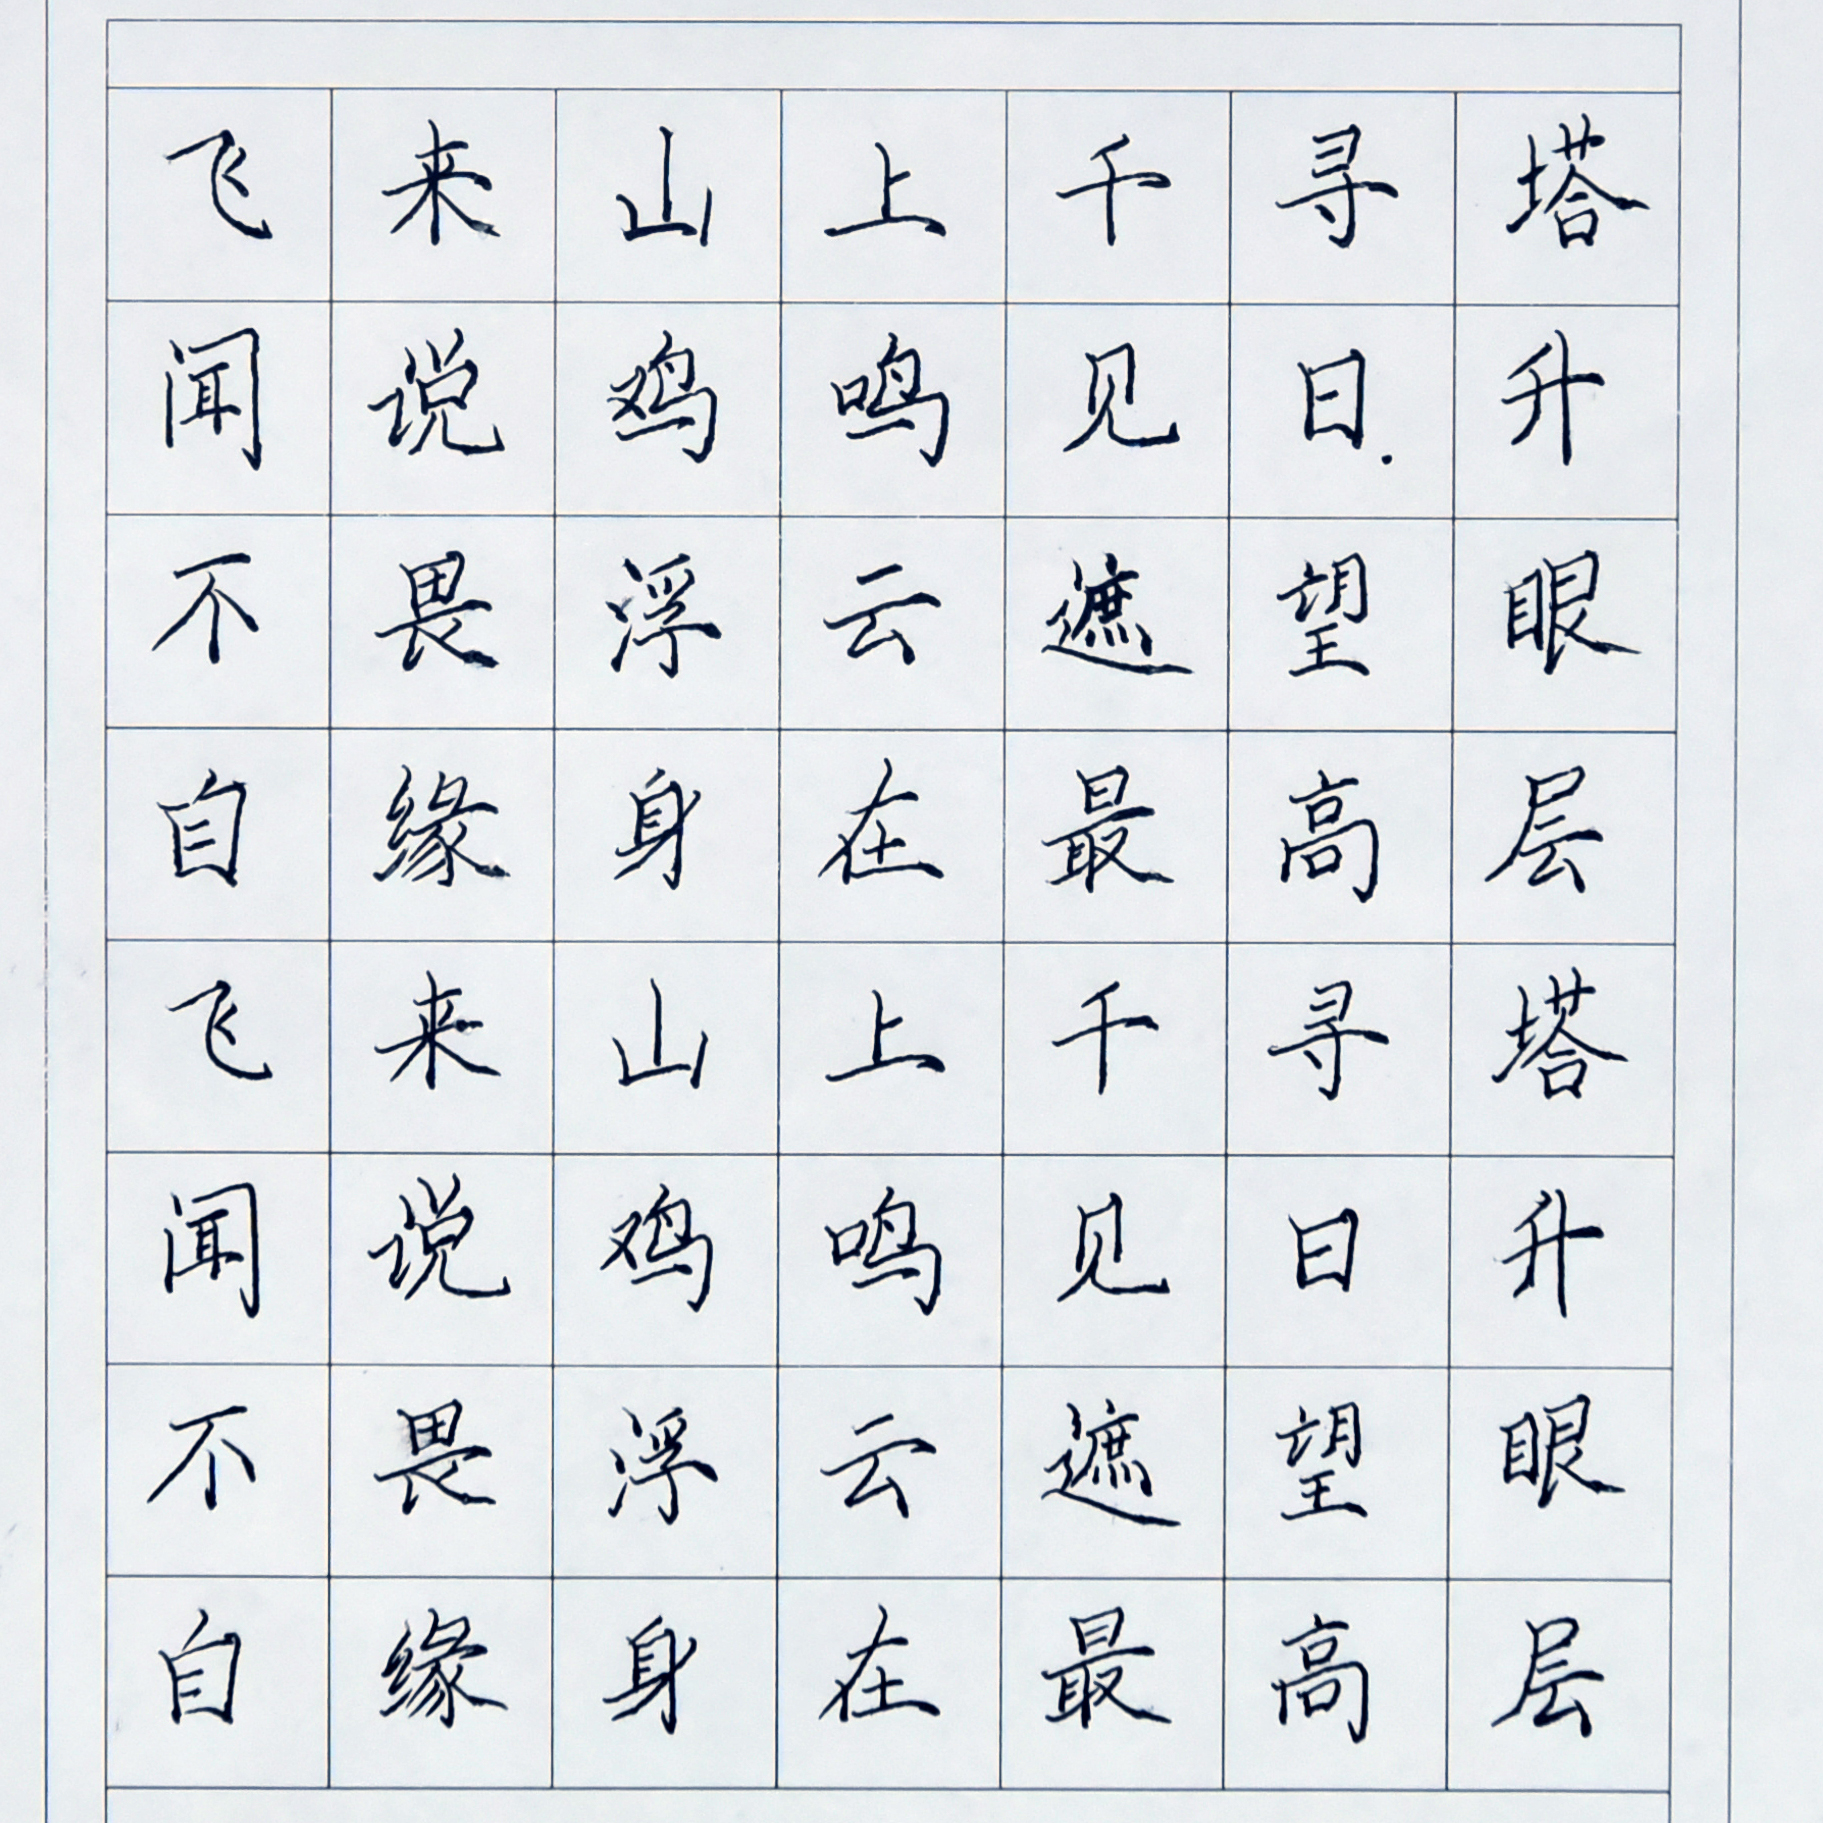 飞来山上千寻塔
闻说鸡鸣见日升
不畏浮云遮望眼
自缘身在最高层
飞来山上千寻塔
闻说鸡鸣见日升
不畏浮云遮望眼
自缘身在最高层